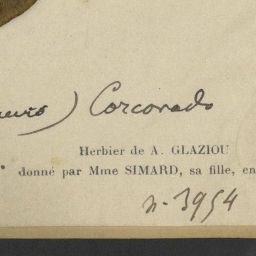 ) Corcovado
Herbier de A. GLAZIOU
donné par Mme SIMARD, sa fille, en
n. 3954